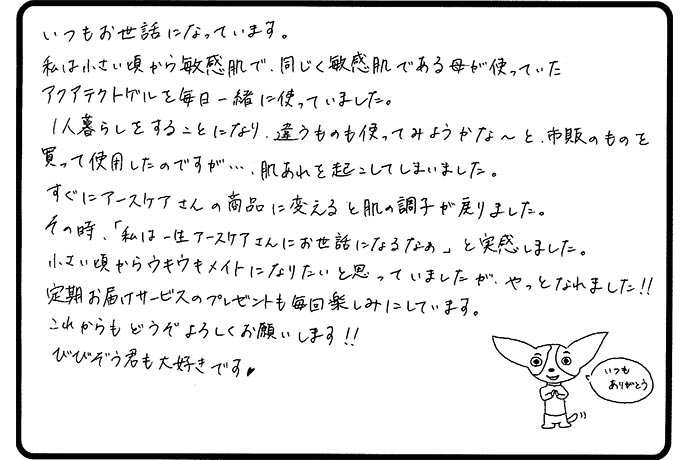 いつもお世話になっています。
私は小さい頃から敏感肌で、同じく敏感肌である母が使っていた
アクアテクトゲルを毎日一緒に使っていました。
1人暮らしをすることになり、違うものも使ってみようかな〜と、市販のものを
買って使用したのですが…、肌あれを起こしてしまいました。
すぐにアースケアさんの商品に変えると肌の調子が戻りました。
その時、「私は一生アースケアさんにお世話になるなぁ」と実感しました。
小さい頃からウキウキメイトになりたいと思っていましたが、やっとなれました!!
定期お届けサービスのプレゼントも毎回楽しみにしています。
これからもどうぞよろしくお願いします!!
びびぞう君も大好きです♥
いつも
ありがとう